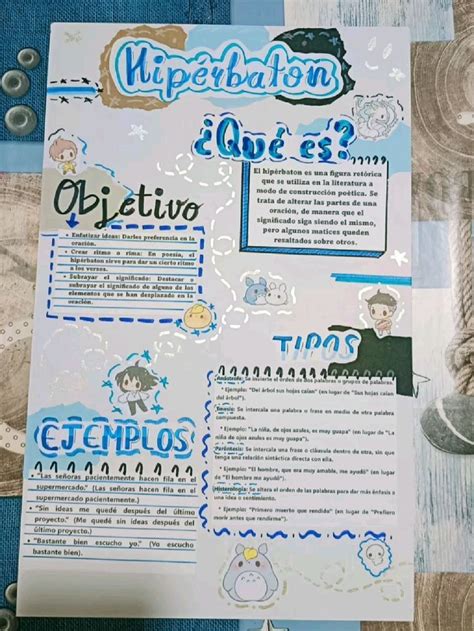 Hipérbaton
¿Qué es?
El hipérbaton es una figura retórica
que se utiliza en la literatura a
modo de construcción poética. Se
trata de alterar las partes de una
oración, de manera que el
significado siga siendo el mismo,
pero algunos matices queden
resaltados sobre otros.
Objetivo
• Enfatizar ideas: Darles preferencia en la
oración.
• Crear ritmo o rima: En poesía, el
hipérbaton sirve para dar un cierto ritmo
a los versos.
• Subrayar el significado: Destacar o
subrayar el significado de alguno de los
elementos que se han desplazado en la
oración.
TIPOS
Anástrofe: Se invierte el orden de dos palabras o grupos de palabras.
• Ejemplo: "Del árbol sus hojas caían" (en lugar de "Sus hojas caían
del árbol").
Tmesis: Se intercala una palabra o frase en medio de otra palabra
compuesta.
• Ejemplo: "La niña, de ojos azules, es muy guapa". (en lugar de "La
niña de ojos azules es muy guapa").
Paréntesis: Se intercala una frase o cláusula dentro de otra, sin que
tenga una relación sintáctica directa con ella.
• Ejemplo: "El hombre, que era muy amable, me ayudó" (en lugar
de "El hombre me ayudó").
Histerología: Se altera el orden de las palabras para dar más énfasis a
una idea o sentimiento.
• Ejemplo: "Primero muerto que rendido" (en lugar de "Prefiero
morir antes que rendirme").
EJEMPLOS
• "Las señoras pacientemente hacen fila en el
supermercado." (Las señoras hacen fila en el
supermercado pacientemente.)
• "Sin ideas me quedé después del último
proyecto." (Me quedé sin ideas después del
último proyecto.)
• "Bastante bien escucho yo." (Yo escucho
bastante bien).